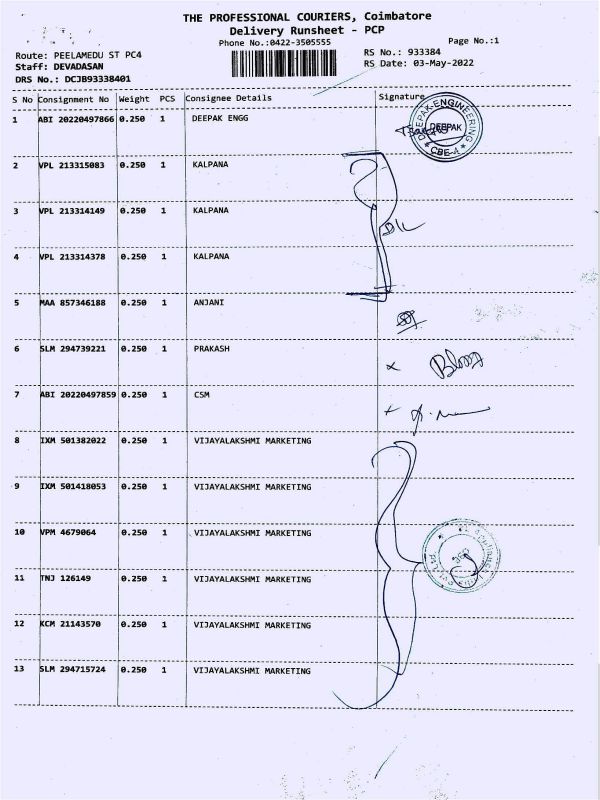 THE PROFESSIONAL COURIERS, Coimbatore
Delivery Runsheet - PCP
Phone No.:0422-3505555
Page No.:1
Route: PEELAMEDU ST PC4
RS No.: 933384
Staff: DEVADASAN
RS Date: 03-May-2022
DRS No.: DCJB93338401
S No Consignment No Weight PCS Consignee Details Signature
1 ABI 20220497866 0.250 1 DEEPAK ENGG
DEEPAK ENGINEERING
DEEPAK
CBE-4
2 VPL 213315083 0.250 1 KALPANA
3 VPL 213314149 0.250 1 KALPANA
4 VPL 213314378 0.250 1 KALPANA
5 MAA 857346188 0.250 1 ANJANI
6 SLM 294739221 0.250 1 PRAKASH
7 ABI 20220497859 0.250 1 CSM
8 IXM 501382022 0.250 1 VIJAYALAKSHMI MARKETING
9 IXM 501418053 0.250 1 VIJAYALAKSHMI MARKETING
10 VPM 4679064 0.250 1 VIJAYALAKSHMI MARKETING
11 TNJ 126149 0.250 1 VIJAYALAKSHMI MARKETING
12 KCM 21143570 0.250 1 VIJAYALAKSHMI MARKETING
13 SLM 294715724 0.250 1 VIJAYALAKSHMI MARKETING